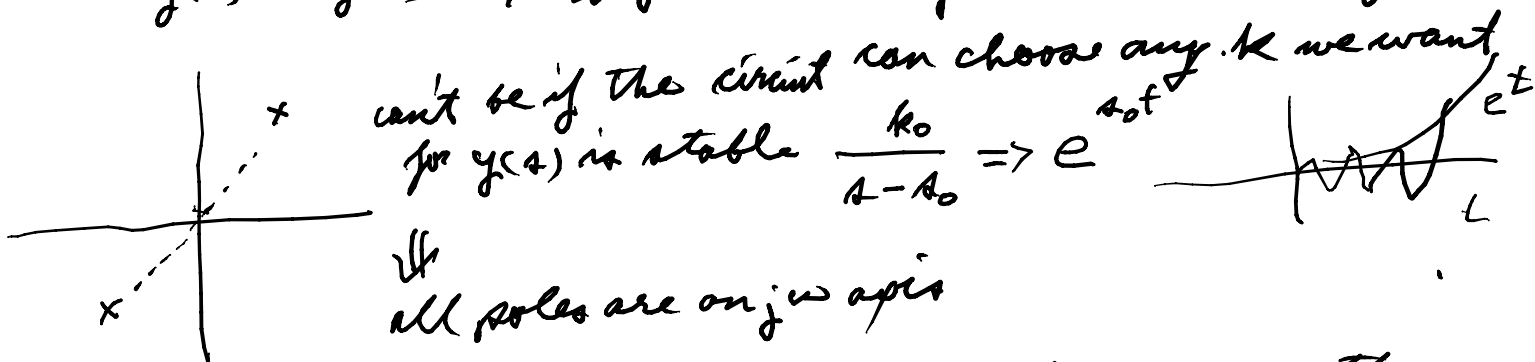 can't be if the circuit can choose any k we want
for y(s) is stable k₀/(s-s₀) => e^{s₀t}
e^t
t
⇓
all poles are on jω axis
x
x